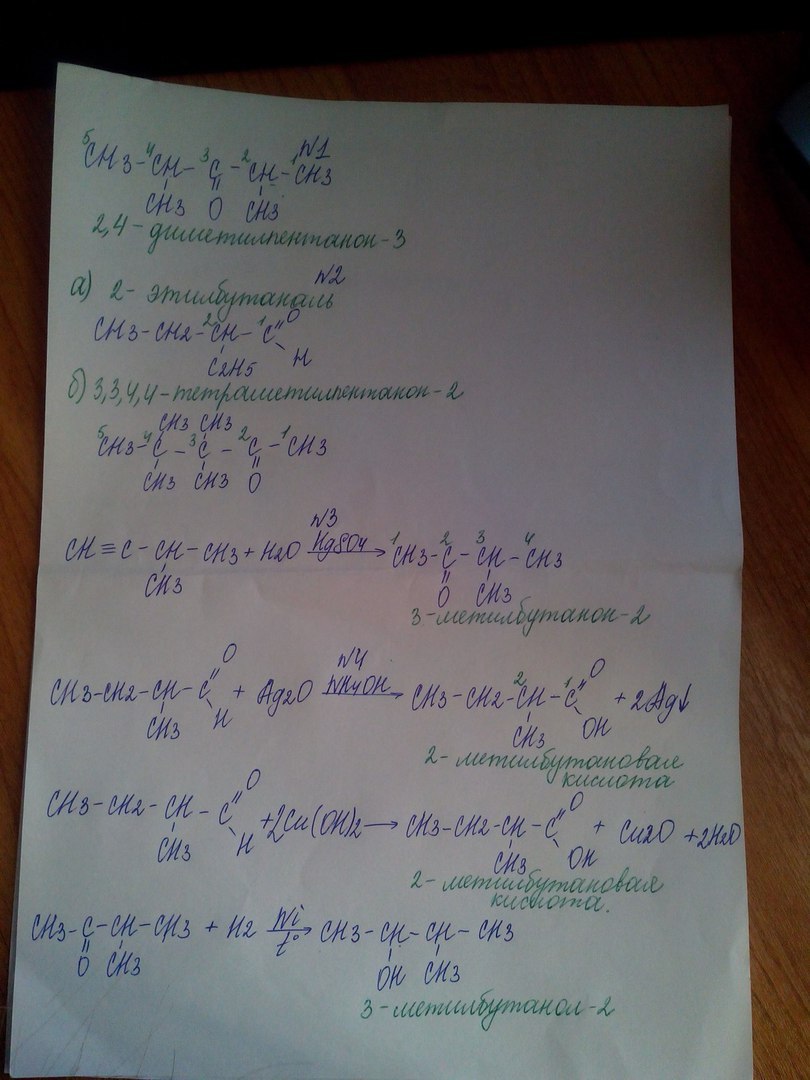 N1
5CH3-4CH-3C-2CH-1CH3
CH3 O CH3
2,4-диметилпентанон-3
N2
а) 2-этилбутаналь
O
CH3-CH2-2CH-1C
C2H5 H
б) 3,3,4,4-тетраметилпентанон-2
CH3 CH3
5CH3-4C-3C-2C-1CH3
CH3 CH3 O
N3
CH≡C-CH-CH3+H2O HgSO4→ 1CH3-2C-3CH-4CH3
CH3 O CH3
3-метилбутанон-2
N4
O O
CH3-CH2-CH-C + Ag2O NH4OH→ CH3-CH2-2CH-1C + 2Ag↓
CH3 H CH3 OH
2-метилбутановая
кислота
O O
CH3-CH2-CH-C +2Cu(OH)2→ CH3-CH2-CH-C + Cu2O +2H2O
CH3 H CH3 OH
2-метилбутановая
кислота.
CH3-C-CH-CH3 + H2 Ni→ CH3-CH-CH-CH3
O CH3 t° OH CH3
3-метилбутанол-2